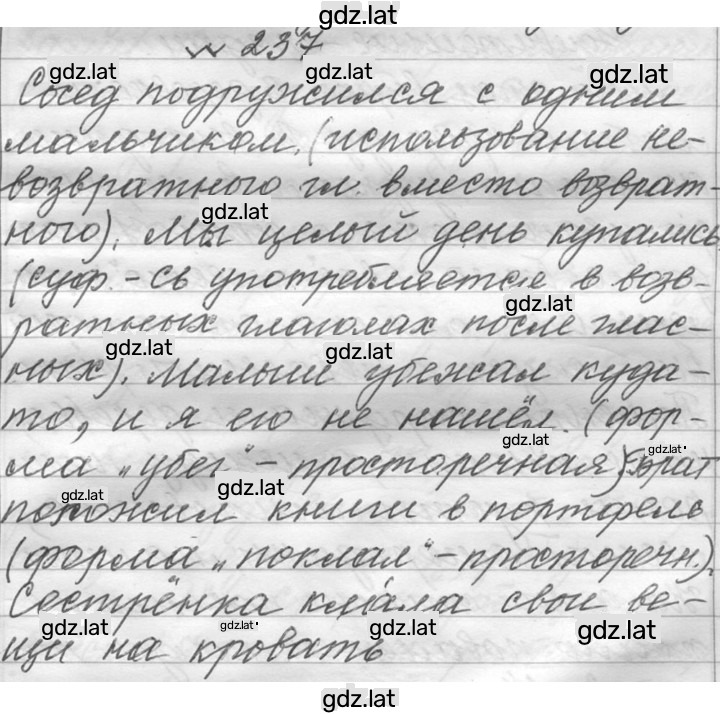 gdz.lat
№ 237
gdz.lat gdz.lat gdz.lat
Сосед подружился с одним
мальчиком. (использование не-
возвратного гл. вместо возврат-
gdz.lat
ного). Мы целый день купались
(суф. -сь употребляется в возв-
gdz.lat
ратных глаголах после глас-
gdz.lat gdz.lat
ных). Малыш убежал куда-
то, и я его не нашёл. (фор-
gdz.lat gdz.lat
ма „убег" - просторечная). Брат
gdz.lat gdz.lat
положил книги в портфель
(форма „поклал" - просторечн.).
Сестрёнка клала свои ве-
gdz.lat gdz.lat gdz.lat gdz.lat
щи на кровать
gdz.lat